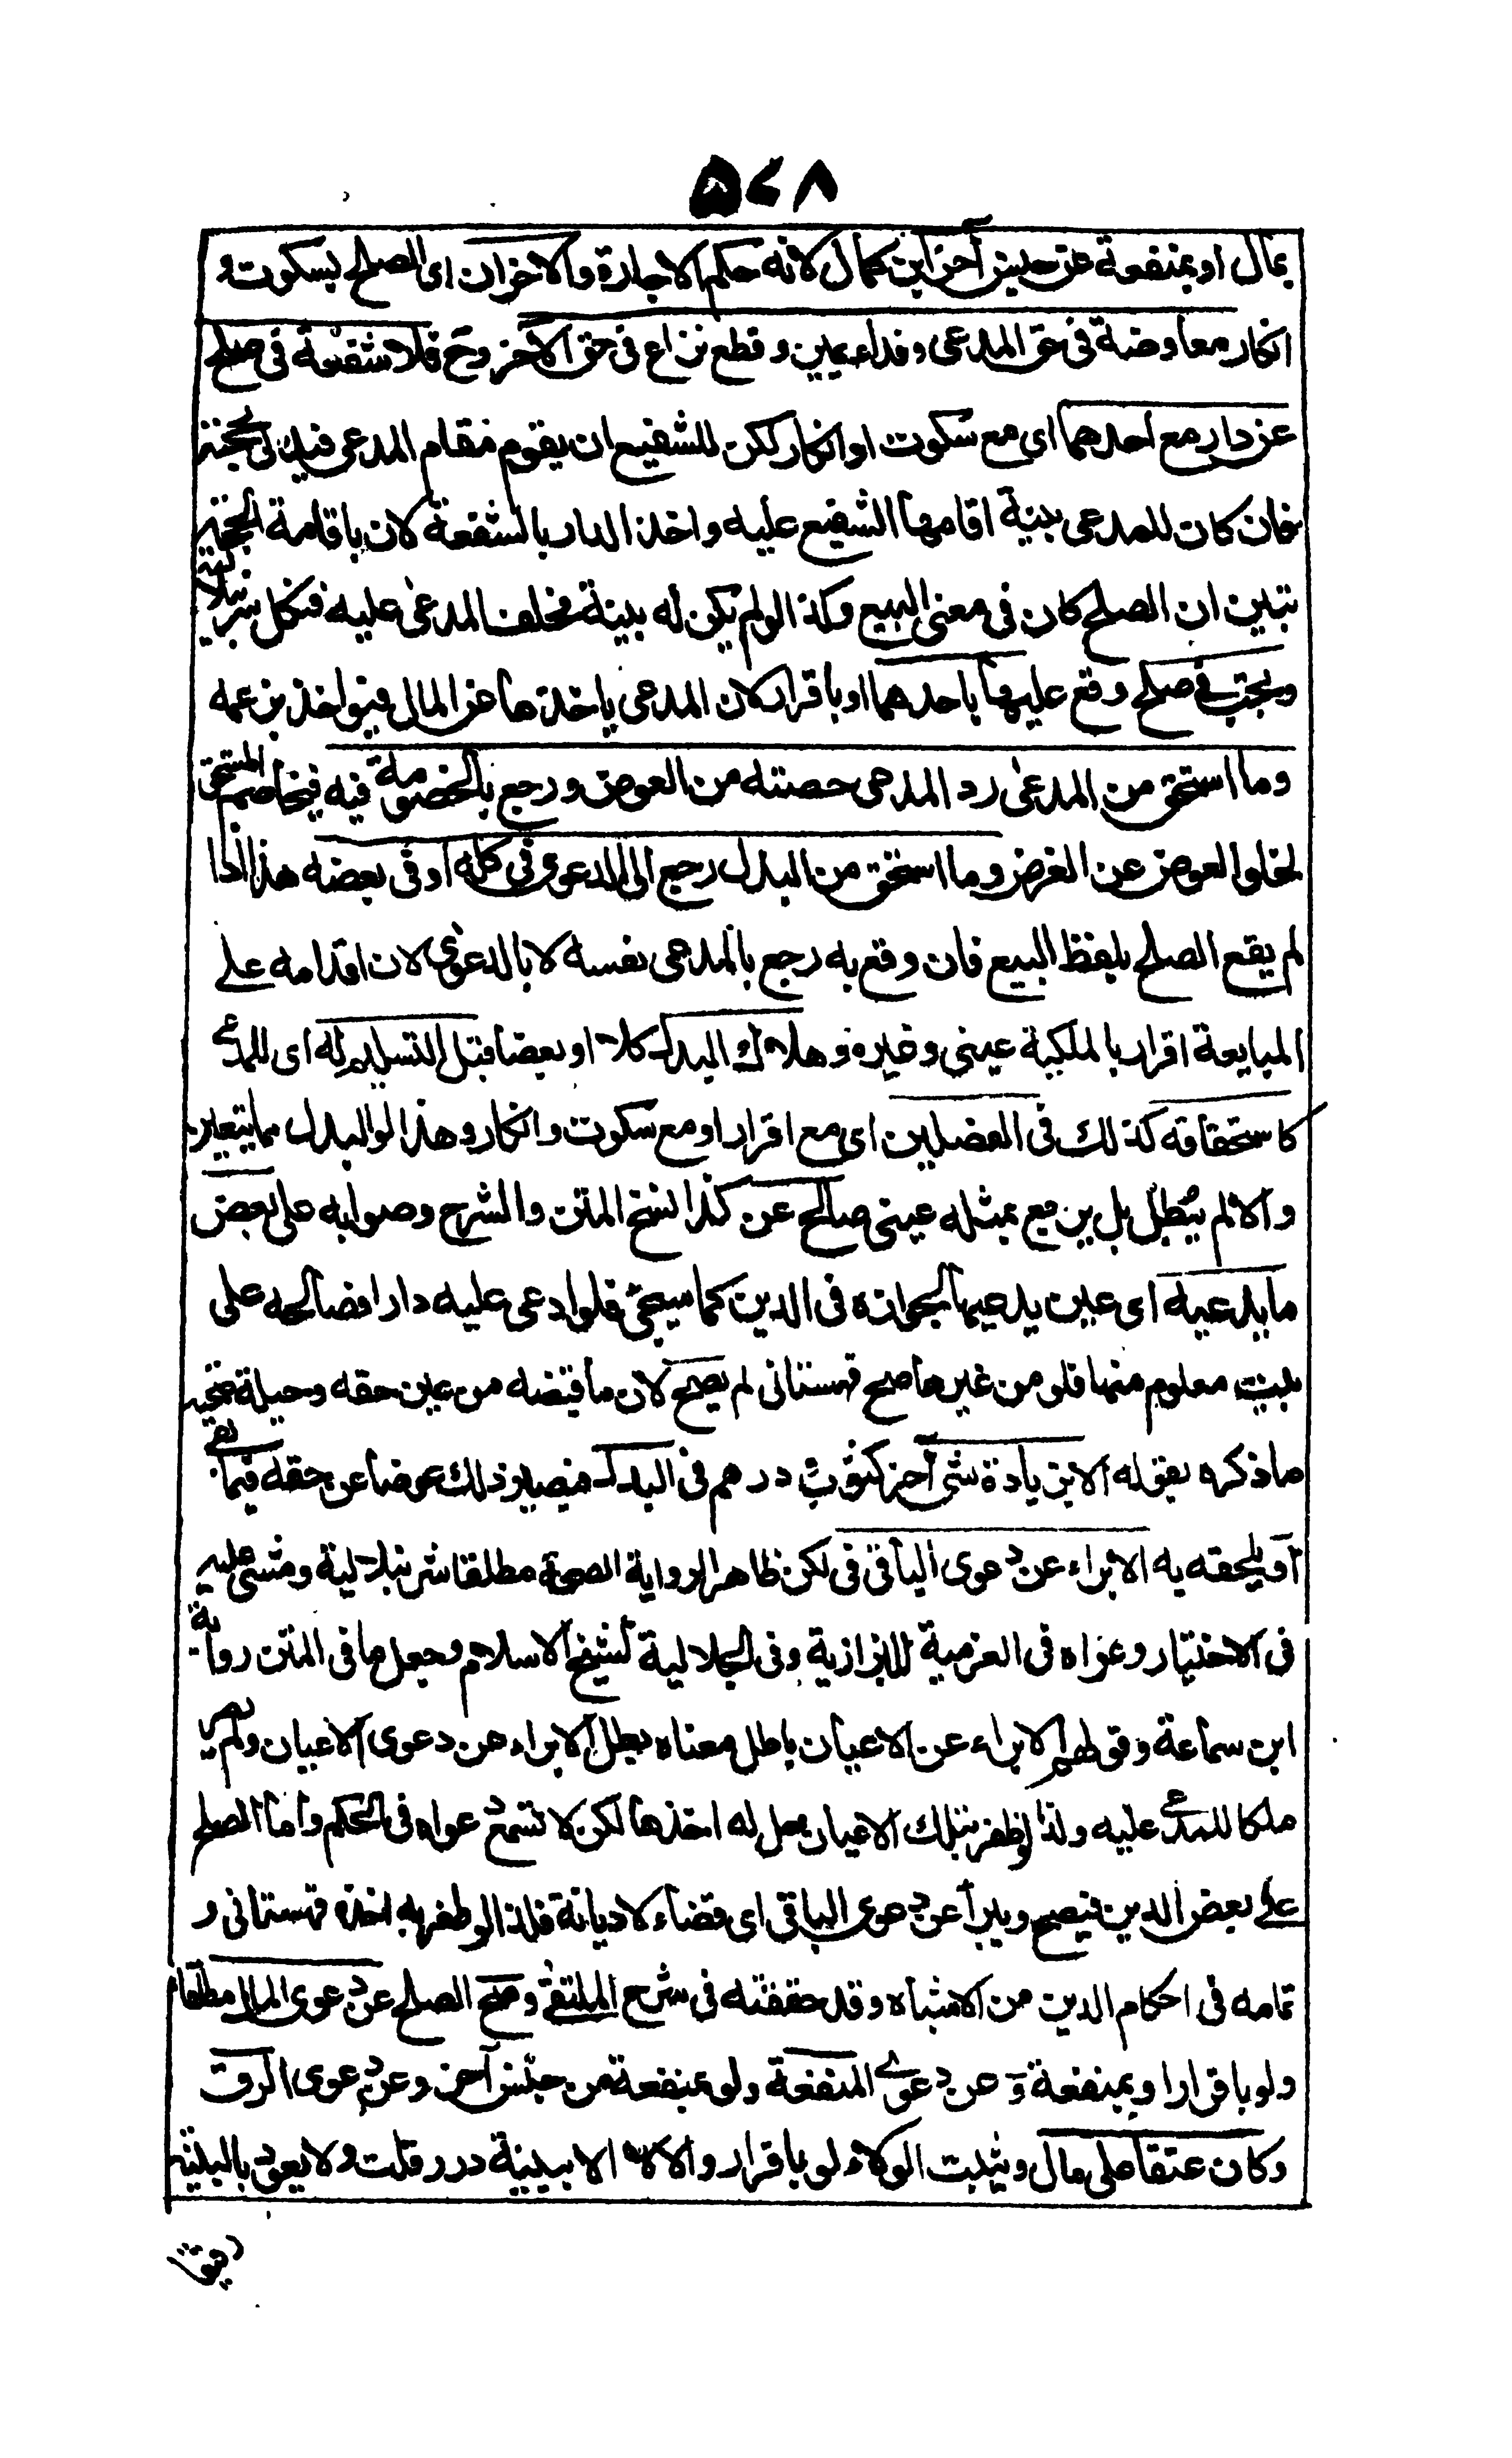 ٥٧٨
بمال او بمنفعة عن جنس آخر ابن كمال لانه حكم الاجارة والاخران اى الصلح بسكوت و
انكار معاوضة فى حق المدعى وفداء يمين وقطع نزاع فى حق الآخر وح فلا شفعة فى صلح
عن دار مع احدهما اى مع سكوت او انكار لكن للشفيع ان يقوم مقام المدعى فيدلى بحجته
فان كان للمدعى بينة اقامها الشفيع عليه واخذ الدار بالشفعة لان باقامة الحجة
تبين ان الصلح كان فى معنى البيع وكذا لو لم يكن له بينة فحلف المدعى عليه فنكل شرنبلالية
وتجب فى صلح وقع عليها باحدهما او باقرار لان المدعى ياخذها عن المال فيواخذ بزعمه
وما استحق من المدعى رد المدعى حصته من العوض ورجع بالخصومة فيه فيخاصم المستحق
لخلو العوض عن الغرض وما استحق من البدل رجع الى الدعوى فى كله او فى بعضه هذا اذا
لم يقع الصلح بلفظ البيع فان وقع به رجع بالمدعى نفسه لا بالدعوى لان اقدامه على
المبايعة اقرار بالملكية عينى وغيره وهلاك البدل كلا او بعضا قبل التسليم له اى للمدعى
كاستحقاقه كذلك فى الفصلين اى مع اقرار او مع سكوت وانكار وهذا لو البدل مما يتعين
والا لم يبطل بل يرجع بمثله عينى صالح عن كذا نسخ المتن والشرح وصوابه على بعض
ما يدعيه اى عين يدعيها لجوازه فى الدين كما سيجئ فلو ادعى عليه دارا فصالحه على
بيت معلوم منها فلو من غيرها صح قهستانى لم يصح لان ما قبضه من عين حقه وحيلة صحته
ما ذكره بقوله الا بزيادة شئ آخر كثوب درهم فى البدل فيصير ذلك عوضا عن حقه فيما بقى
او يلحقه به الابراء عن دعوى الباقى فى لكن ظاهر الرواية الصحة مطلقا شرنبلالية ومشى عليه
فى الاختيار وعزاه فى العزمية للبزازية وفى الجلالية لشيخ الاسلام وجعل ما فى المتن رواية
ابن سماعة وقولهم الابراء عن الاعيان باطل معناه بطل الابراء عن دعوى الاعيان ولم يصر
ملكا للمدعى عليه ولذا لو ظفر بتلك الاعيان حل له اخذها لكن لا تسمع دعواه فى الحكم واما الصلح
على بعض الدين فيصح ويبرأ عن دعوى الباقى اى قضاء لا ديانة فلذا لو ظفر به اخذه قهستانى و
تمامه فى احكام الدين من الاشباه وقد حققته فى شرح الملتقى وصح الصلح عن دعوى المال مطلقا
ولو باقرار او بمنفعة و عن دعوى المنفعة ولو بمنفعة من جنس آخر وعن دعوى الرق
وكان عتقا على مال ويثبت الولاء لو باقرار والا لا الا ببينة درر قلت ولا يعود بالبينة
رقيقا